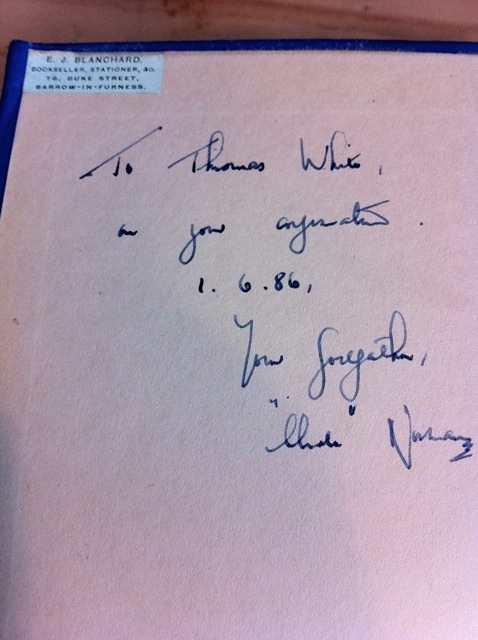 E. J. BLANCHARD.
BOOKSELLER, STATIONER, &O.
78, DUKE STREET,
BARROW-IN-FURNESS.
To Thomas White,
on your confirmation.
1. 6. 86,
Your Godfather,
"Uncle" Norman